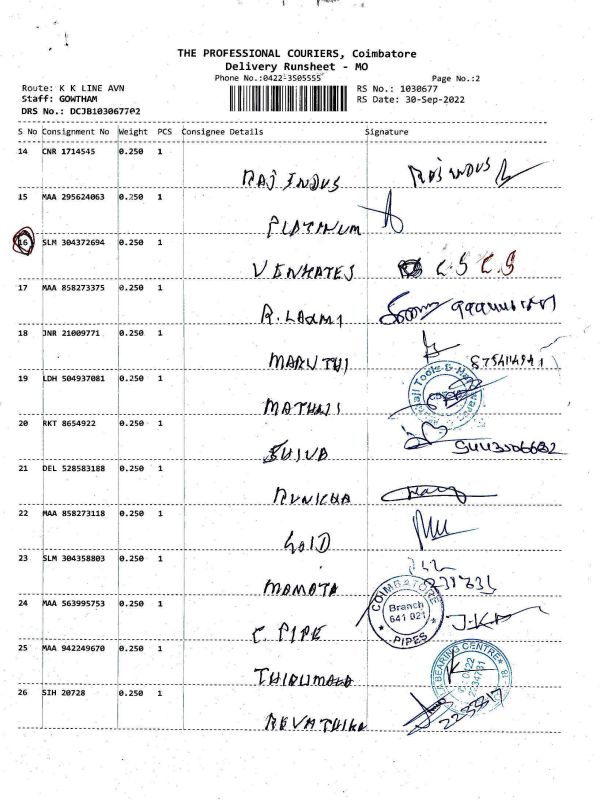 THE PROFESSIONAL COURIERS, Coimbatore
Delivery Runsheet - MO
Phone No.:0422-3505555 Page No.:2
Route: K K LINE AVN RS No.: 1030677
Staff: GOWTHAM RS Date: 30-Sep-2022
DRS No.: DCJB103067702
S No Consignment No Weight PCS Consignee Details Signature
14 CNR 1714545 0.250 1
RAJ INDUS RAJ INDUS
15 MAA 295624063 0.250 1
PLATINUM
16 SLM 304372694 0.250 1
VENKATES C.S C.S
17 MAA 858273375 0.250 1
R. LAXMI
18 JNR 21009771 0.250 1
MARUTHI
19 LDH 504937081 0.250 1
MATHAJI
20 RKT 8654922 0.250 1
SHIVA
21 DEL 528583188 0.250 1
22 MAA 858273118 0.250 1
23 SLM 304358803 0.250 1
MAMATA
24 MAA 563995753 0.250 1
COIMBATORE
Branch
641 021
PIPES
C. PIPE J.K
25 MAA 942249670 0.250 1
BEARING CENTRE
THIRUMALA
26 SIH 20728 0.250 1
REVATHI